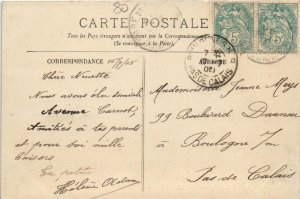 80
CARTE POSTALE
Tous les Pays étrangers n'acceptent pas la Correspondance
(Se renseigner à la Poste).
CORRESPONDANCE
Chère Ninette
Nous avons élu domicile
Avenue Carnot,
Amitiés à tes parents
et pour toi mille
baisers
Ta petite
Hélène
Mademoiselle Jeanne Meys
99 Boulevard Daunou
à Boulogne s/m
Pas de Calais